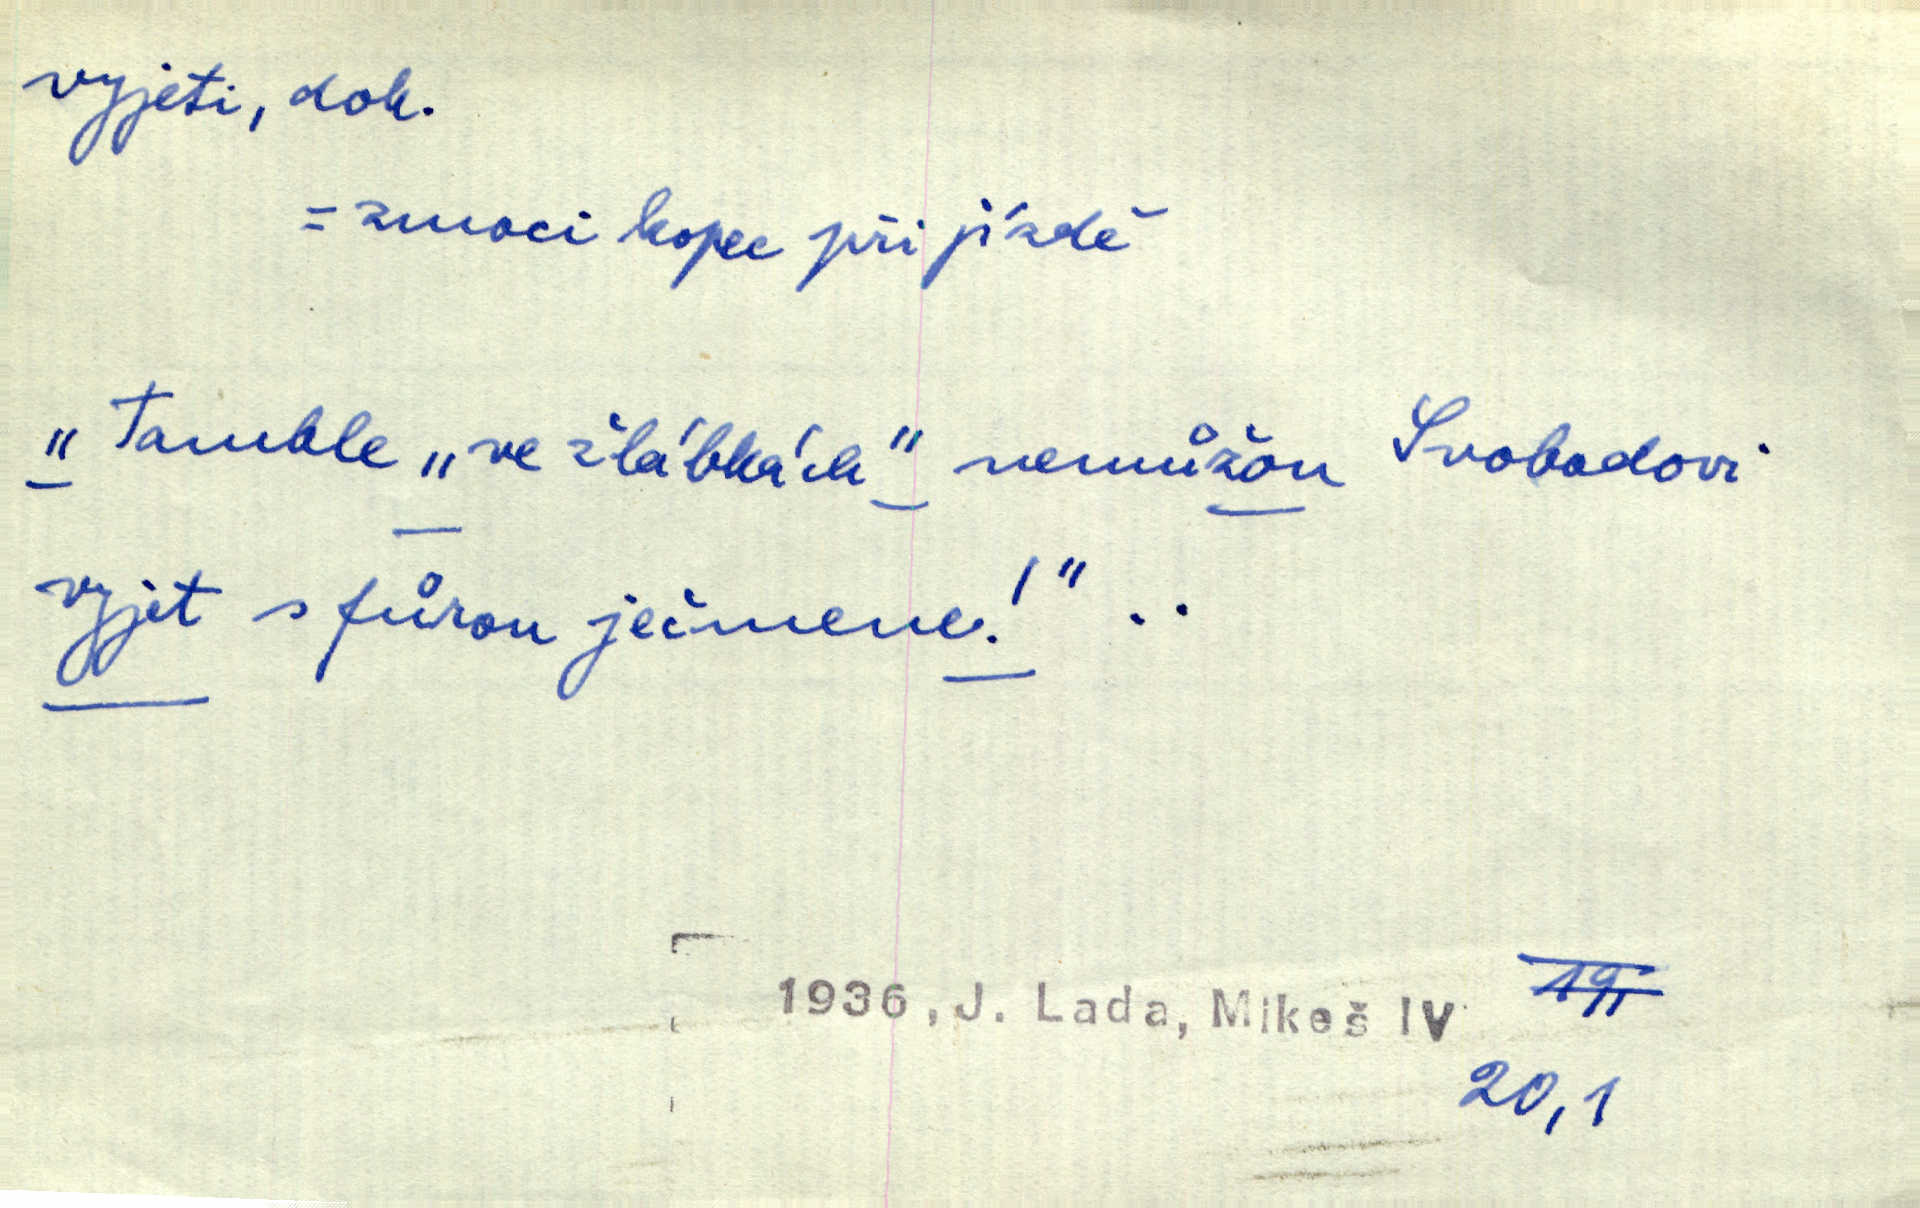 vyjeti, dok.
= zmoci kopec při jízdě
" Tamhle „ve žlábkách" nemůžou Svobodovi
vyjet s fůrou ječmene!" ..
1936, J. Lada, Mikeš IV
20,1